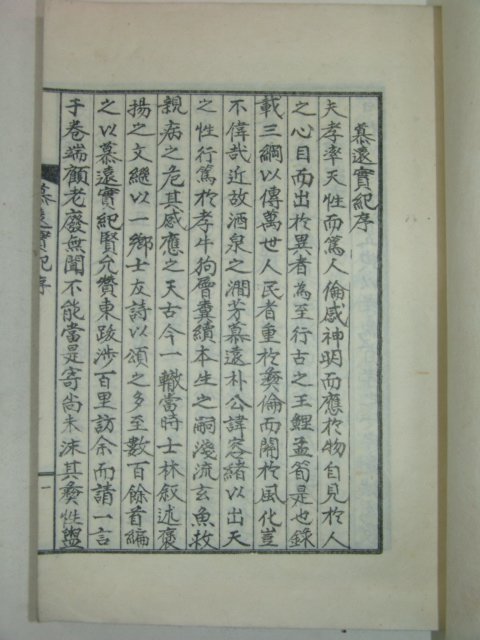 慕遠實紀序
夫孝率天性而篤人倫感神明而應於物自見於人
之心目而出於異者為至行古之王鯉孟筍是也錄
載三綱以傳萬世人民者重於彝倫而關於風化豈
不偉哉近故酒泉之澗芳慕遠朴公諱容緖以出天
之性行篤於孝牛狗嘗糞續本生之嗣淺流玄魚救
親病之危其感應之天古今一轍當時士林叙述褒
揚之文繼以一鄉士友詩以頌之多至數百餘首編
之以慕遠實紀賢允贊東跋涉百里訪余而請一言
于卷端顧老廢無聞不能當是寄尚未沫其彝性盥
慕遠實紀序
一